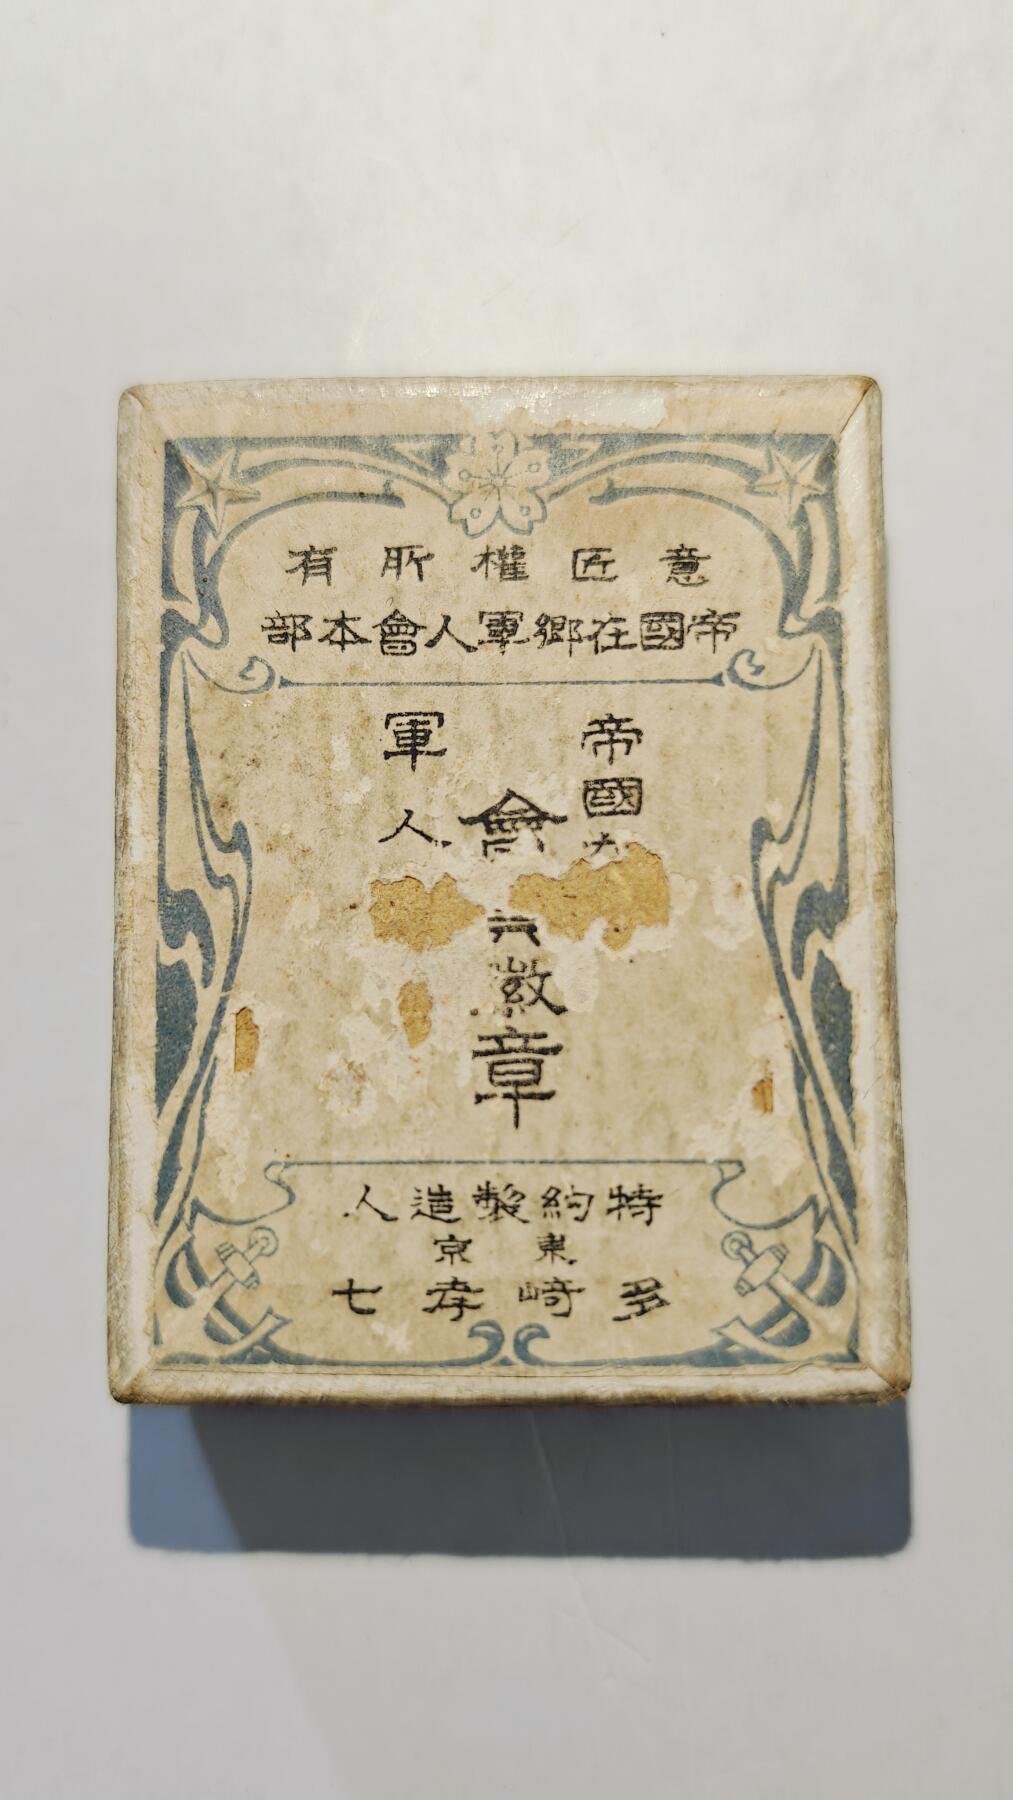 意匠權所有
帝國在鄉軍人會本部
帝國
軍人
會
徽章
特約製造人
東京
多崎孝七